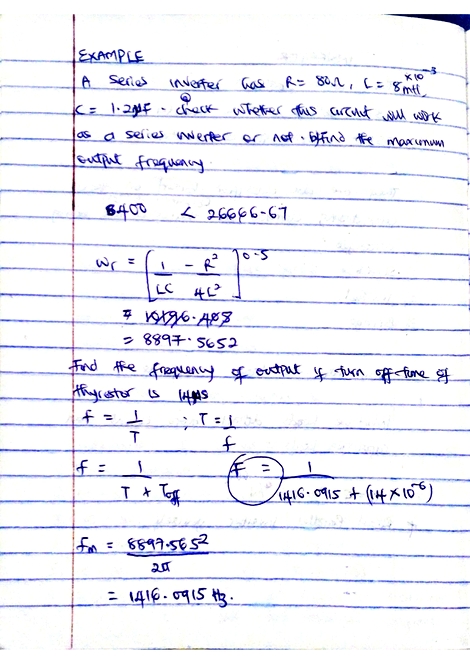 EXAMPLE
A series inverter has R = 80Ω, L = 8mH ×10⁻³
C = 1.2μF. (a) check whether this circuit will work
as a series inverter or not. b) find the maximum
output frequency
6400 < 26666.67
ωr = [1/LC - R²/4L²]^0.5
= 8897.5652
Find the frequency of output if turn off-time of
thyristor is 14μs
f = 1/T ; T = 1/f
f = 1/(T + Toff) F = 1/(1416.0915 + (14×10⁻⁶))
fm = 8897.5652/2π
= 1416.0915 Hz.